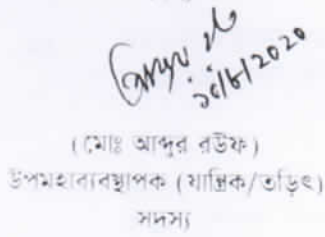 ১০/৮/2020
(মোঃ আব্দুর রউফ)
উপমহাব্যবস্থাপক (যান্ত্রিক/তড়িৎ)
সদস্য